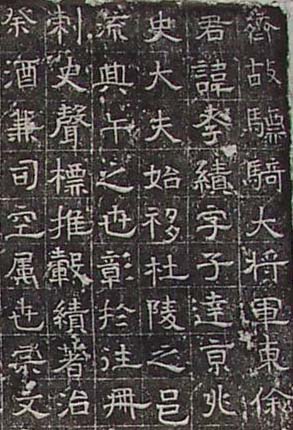 齊故驃騎大将軍東徐
君諱孝績字子達京兆
史大夫始移杜陵之邑
流典午之世彰扵往冊
刺史聲標推轂績著治
祭酒兼司空属世宗文